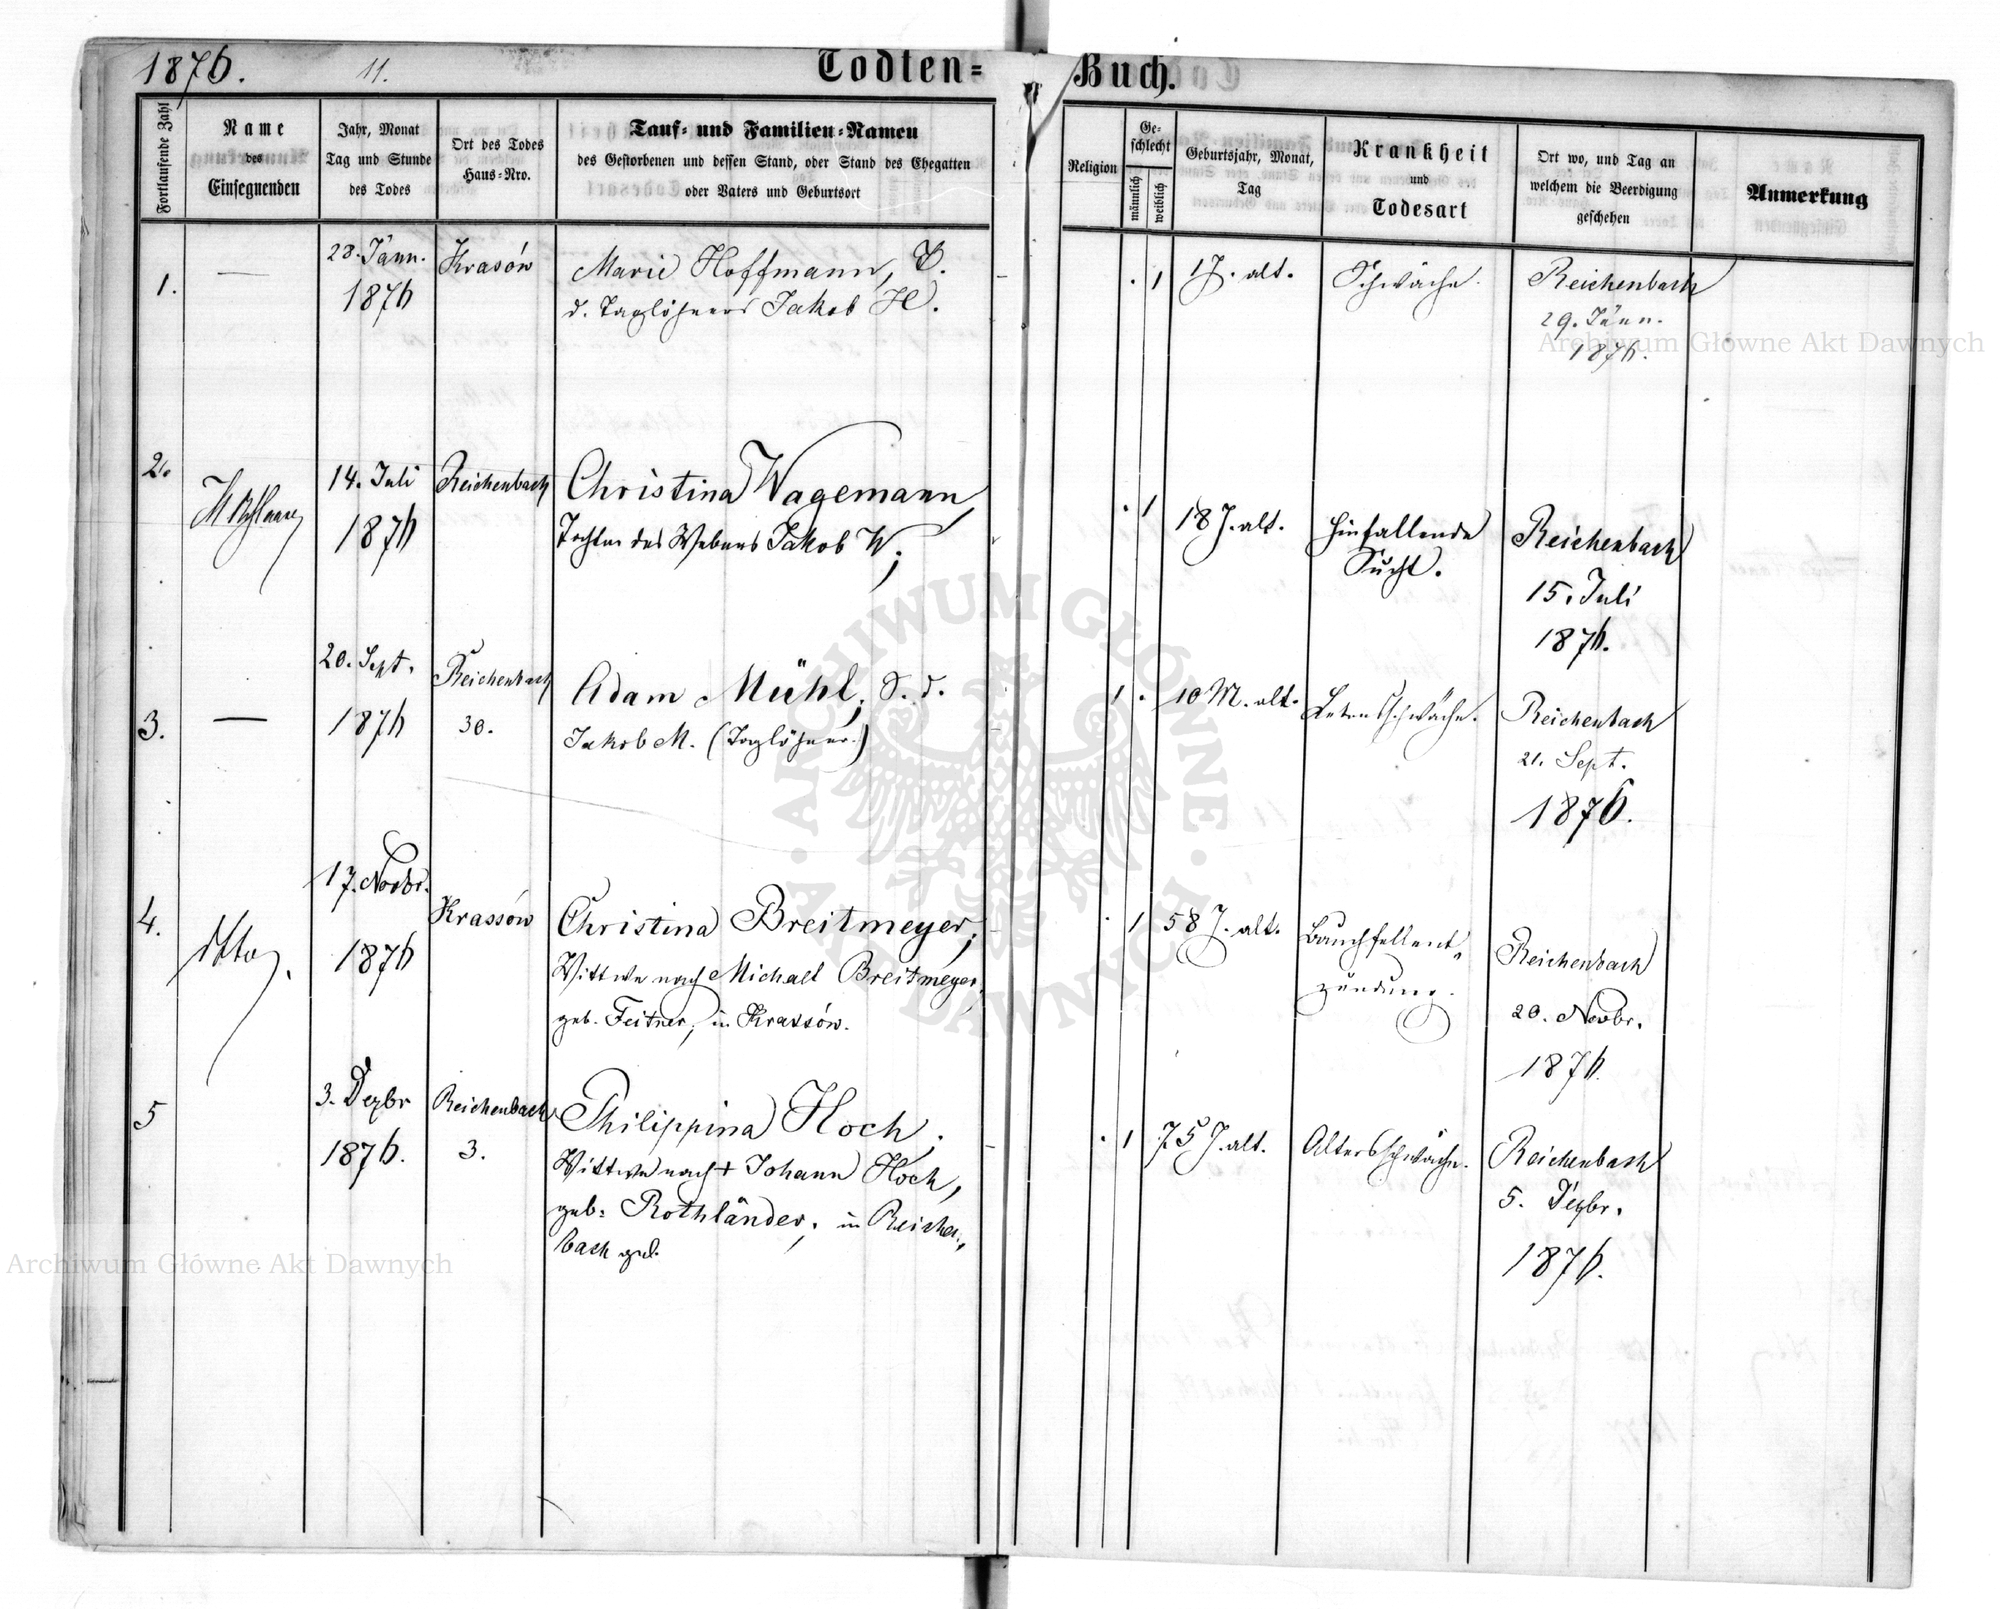 1876.
11.
Todten-Buch.
Fortlaufende Zahl
Name
des
Einsegnenden
Jahr, Monat
Tag und Stunde
des Todes
Ort des Todes
Haus-Nro.
Tauf- und Familien-Namen
des Gestorbenen und dessen Stand, oder Stand des Ehegatten
oder Vaters und Geburtsort
Religion
Ge-
schlecht
männlich
weiblich
Geburtsjahr, Monat,
Tag
Krankheit
und
Todesart
Ort wo, und Tag an
welchem die Beerdigung
geschehen
Anmerkung
1.
—
28. Jänn.
1876
Krasów
Marie Hoffmann, T.
d. Taglöhners Jakob H.
. 1
1 J. alt.
Schwäche.
Reichenbach
29. Jänn.
1876.
2.
14. Juli
1876
Reichenbach
Christina Wagemann,
Tochter des Webers Jakob W;
. 1
18 J. alt.
Hinfallende
Sucht.
Reichenbach
15. Juli
1876.
3.
—
20. Sept.
1876
Reichenbach
30.
Adam Mühl, S. d.
Jakob M. (Taglöhner.)
1 .
10 M. alt.
Lebensschwäche.
Reichenbach
21. Sept.
1876.
4.
17. Novbr.
1876
Krassów
Christina Breitmeyer,
Wittwe nach Michael Breitmeyer,
geb. Feitner, in Krassów.
. 1
58 J. alt.
Bauchfellent„
zündung.
Reichenbach
20. Novbr.
1876.
5
3. Dezbr
1876.
Reichenbach
3.
Philippina Hoch,
Wittwe nach + Johann Hoch,
geb: Rothländer, in Reichen„
bach geb.
. 1
75 J. alt.
Altersschwäche.
Reichenbach
5. Dezbr.
1876.
Archiwum Główne Akt Dawnych
Archiwum Główne Akt Dawnych
ARCHIWUM GŁÓWNE AKT DAWNYCH